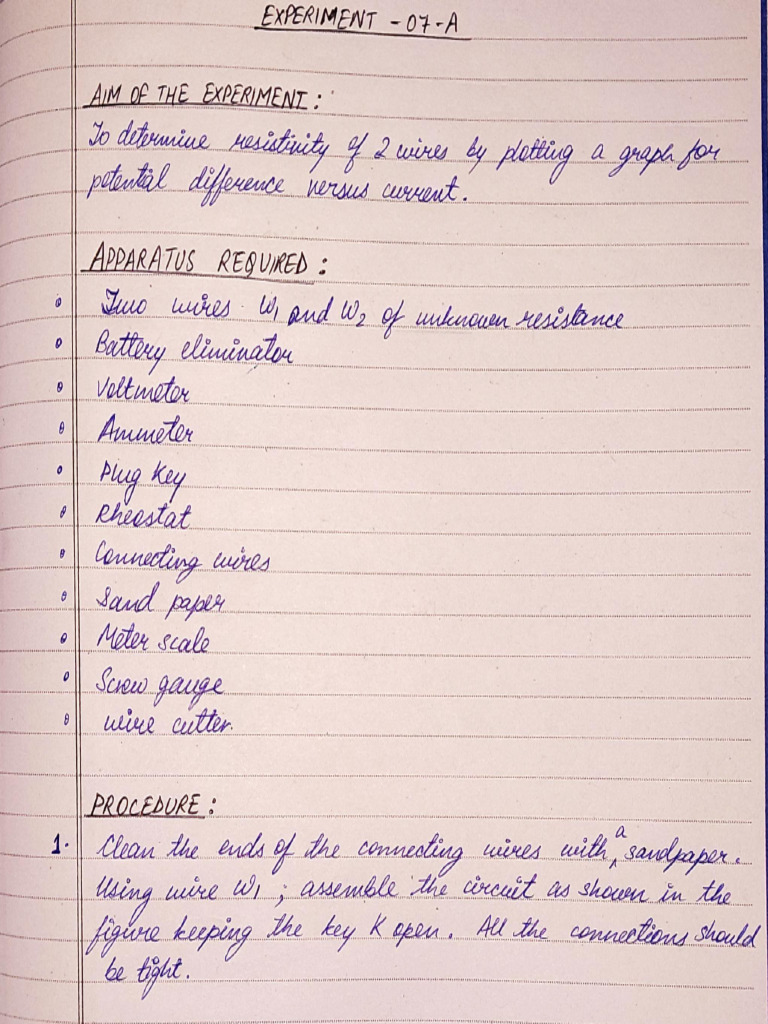 EXPERIMENT - 07-A
AIM OF THE EXPERIMENT:
To determine resistivity of 2 wires by plotting a graph for
potential difference versus current.
APPARATUS REQUIRED:
Two wires W1 and W2 of unknown resistance
Battery eliminator
Voltmeter
Ammeter
Plug Key
Rheostat
Connecting wires
Sand paper
Meter scale
Screw gauge
wire cutter.
PROCEDURE:
1. Clean the ends of the connecting wires with a sandpaper.
Using wire W1; assemble the circuit as shown in the
figure keeping the key K open. All the connections should
be tight.